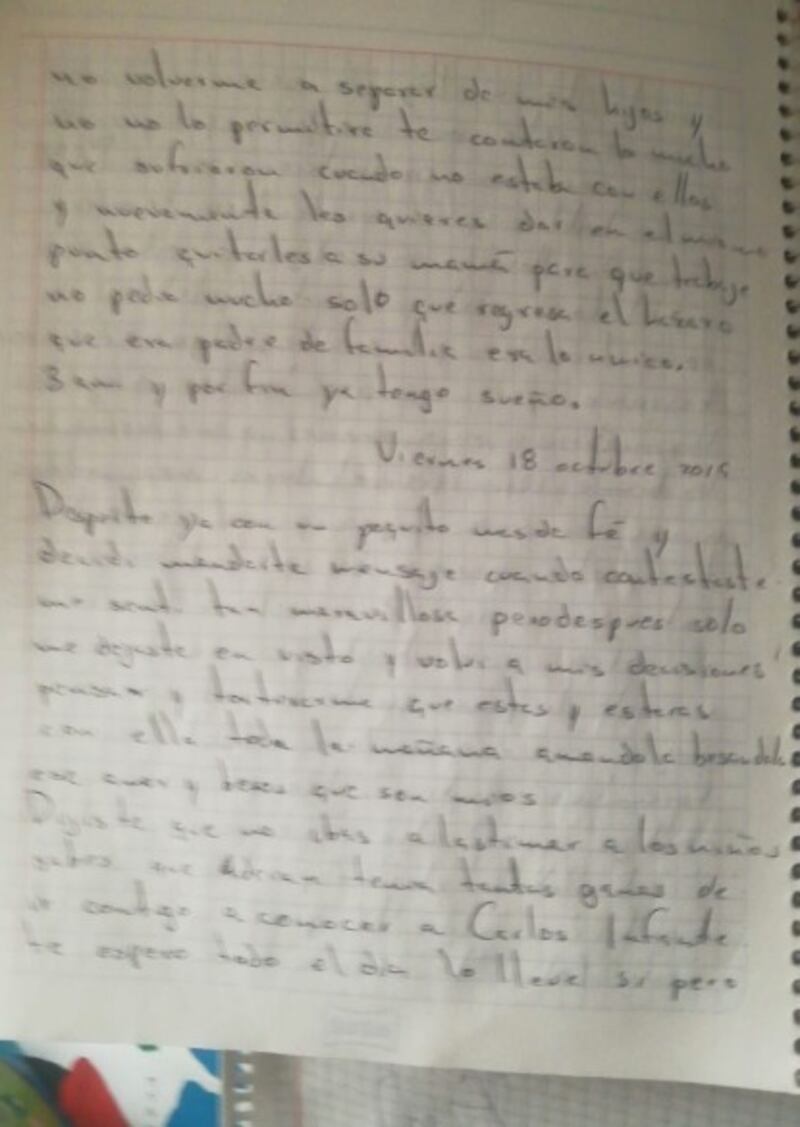 no volverme a separar de mis hijos y
no no lo permitire te contaron lo mucho
que sufrieron cuando no estaba con ellos
y nuevamente les quieres dar en el mismo
punto quitarles a su mamá para que trabaje
no pedia mucho solo que regrese el
que era padre de familia era lo unico.
3 am y por fin ya tengo sueño.
Viernes 18 octubre,
Desperte ya con un poquito mas de fé y
decidi mandarte mensaje cuando contestaste
me senti tan maravillosa pero despues solo
me dejaste en visto y volvi a mis decisiones
pensar y que estas y estaras
con ella toda la mañana amandola besandola
ese amor y besos que son mios
Dijiste que no ibas a lastimar a los niños
sabes que Adrian tenia tantas ganas de
ir contigo a conocer a Carlos Infante
te espero todo el dia lo lleve si pero